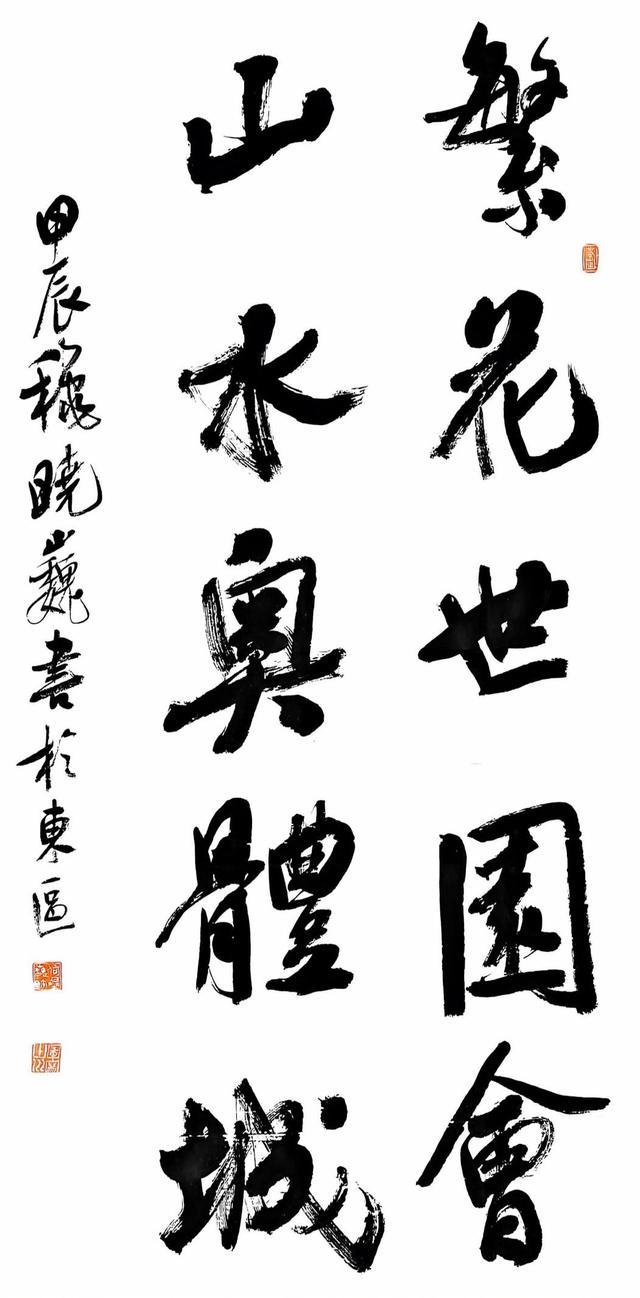 繁花世園會
山水奧體城
甲辰穐曉巍書於東區